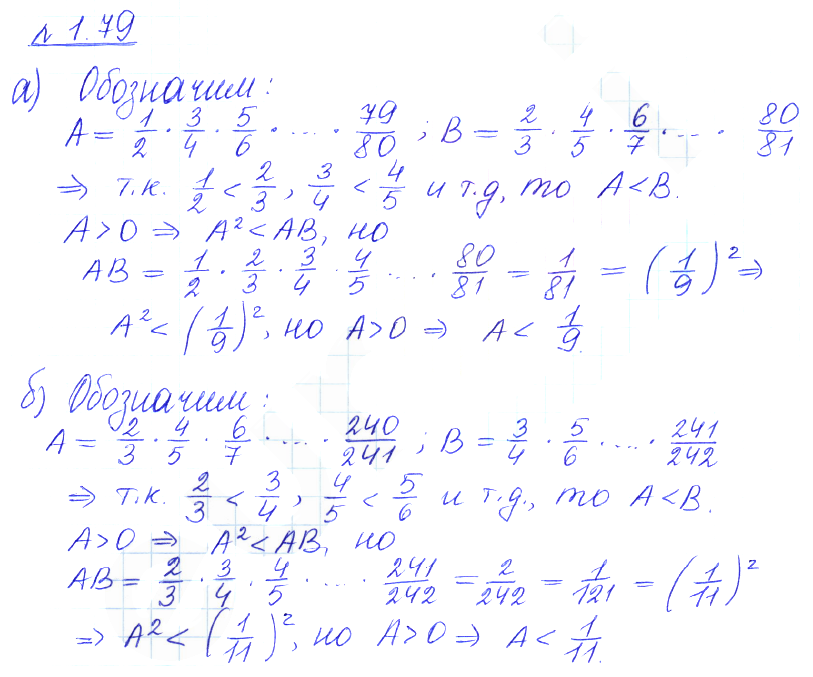 № 1.79
а) Обозначим:
A = 1/2 · 3/4 · 5/6 · ... · 79/80 ; B = 2/3 · 4/5 · 6/7 · ... · 80/81
⇒ т.к. 1/2 < 2/3, 3/4 < 4/5 и т.д, то A < B.
A > 0 ⇒ A² < AB, но
AB = 1/2 · 2/3 · 3/4 · 4/5 ... · 80/81 = 1/81 = (1/9)² ⇒
A² < (1/9)², но A > 0 ⇒ A < 1/9.
б) Обозначим:
A = 2/3 · 4/5 · 6/7 · ... · 240/241 ; B = 3/4 · 5/6 · ... · 241/242
⇒ т.к. 2/3 < 3/4, 4/5 < 5/6 и т.д., то A < B.
A > 0 ⇒ A² < AB, но
AB = 2/3 · 3/4 · 4/5 · ... · 241/242 = 2/242 = 1/121 = (1/11)²
⇒ A² < (1/11)², но A > 0 ⇒ A < 1/11.